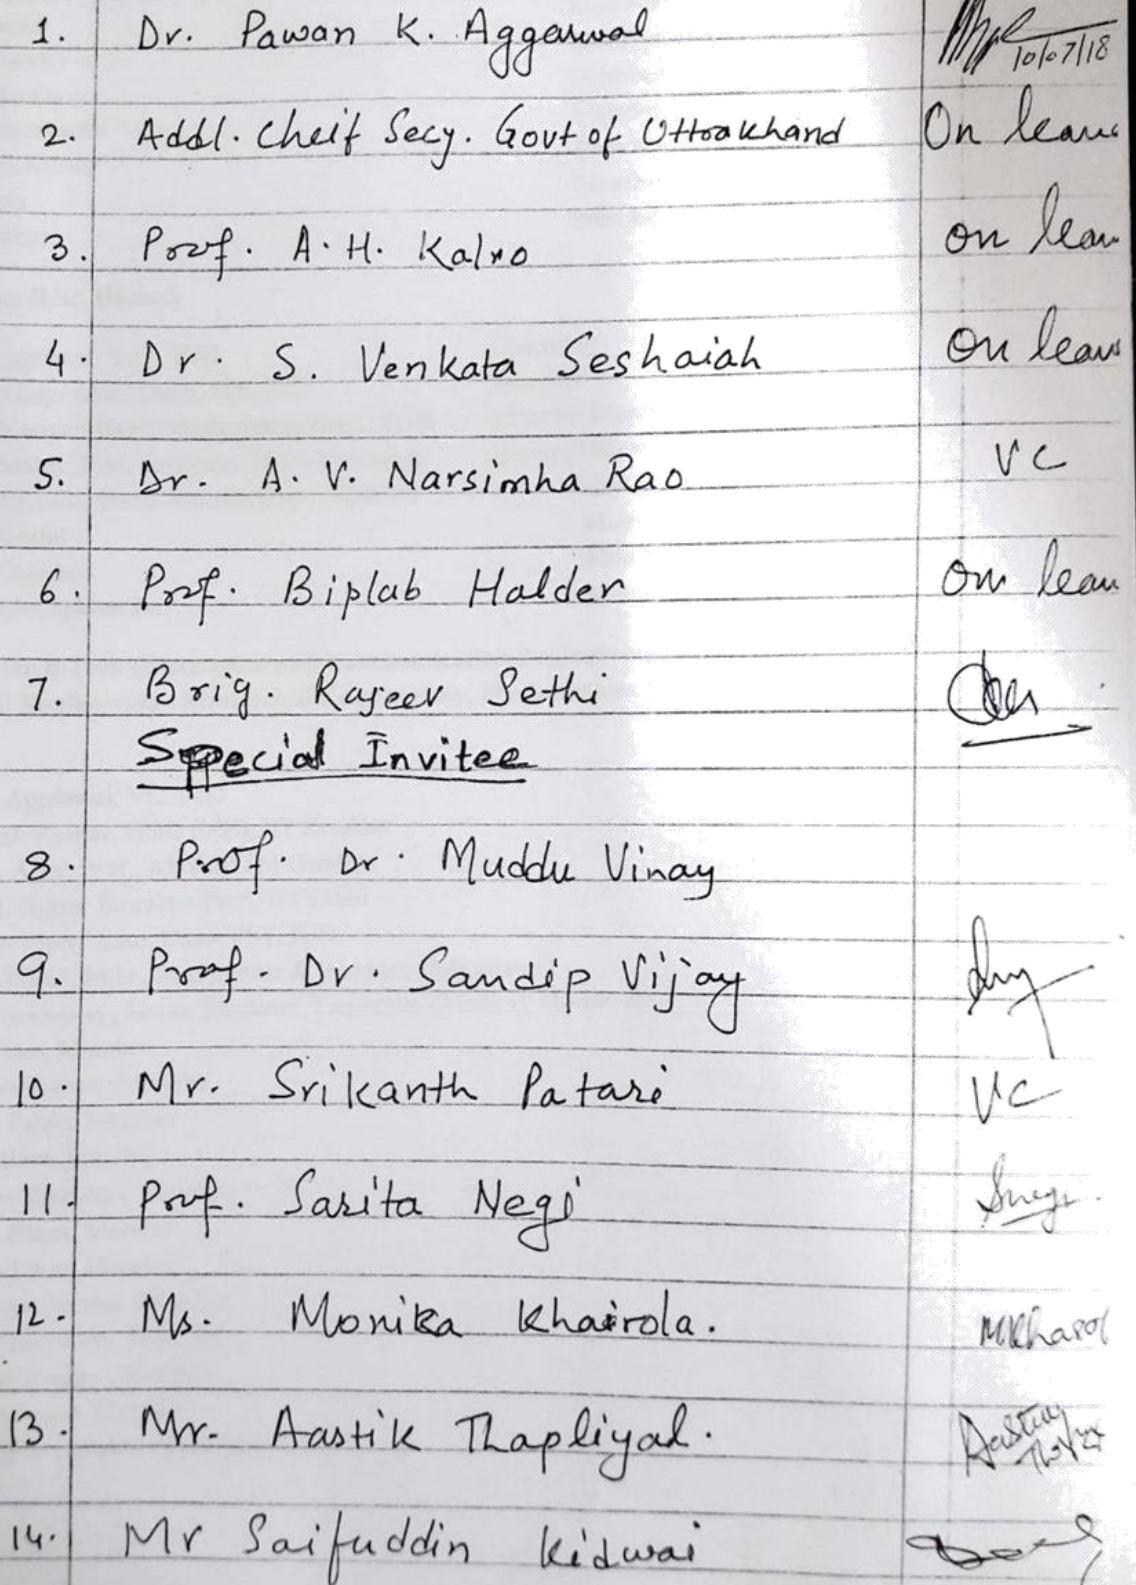 1. Dr. Pawan K. Aggarwal 10/07/18
2. Addl. Cheif Secy. Govt of Uttrakhand On leave
3. Prof. A. H. Kalro on leave
4. Dr. S. Venkata Seshaiah on leave
5. Dr. A. V. Narsimha Rao VC
6. Prof. Biplab Halder on leave
7. Brig. Rajeev Sethi
Special Invitee
8. Prof. Dr. Muddu Vinay
9. Prof. Dr. Sandip Vijay
10. Mr. Srikanth Patari VC
11. Prof. Sarita Negi Snegi.
12. Ms. Monika Khairola.
13. Mr. Aastik Thapliyal.
14. Mr Saifuddin Kidwai